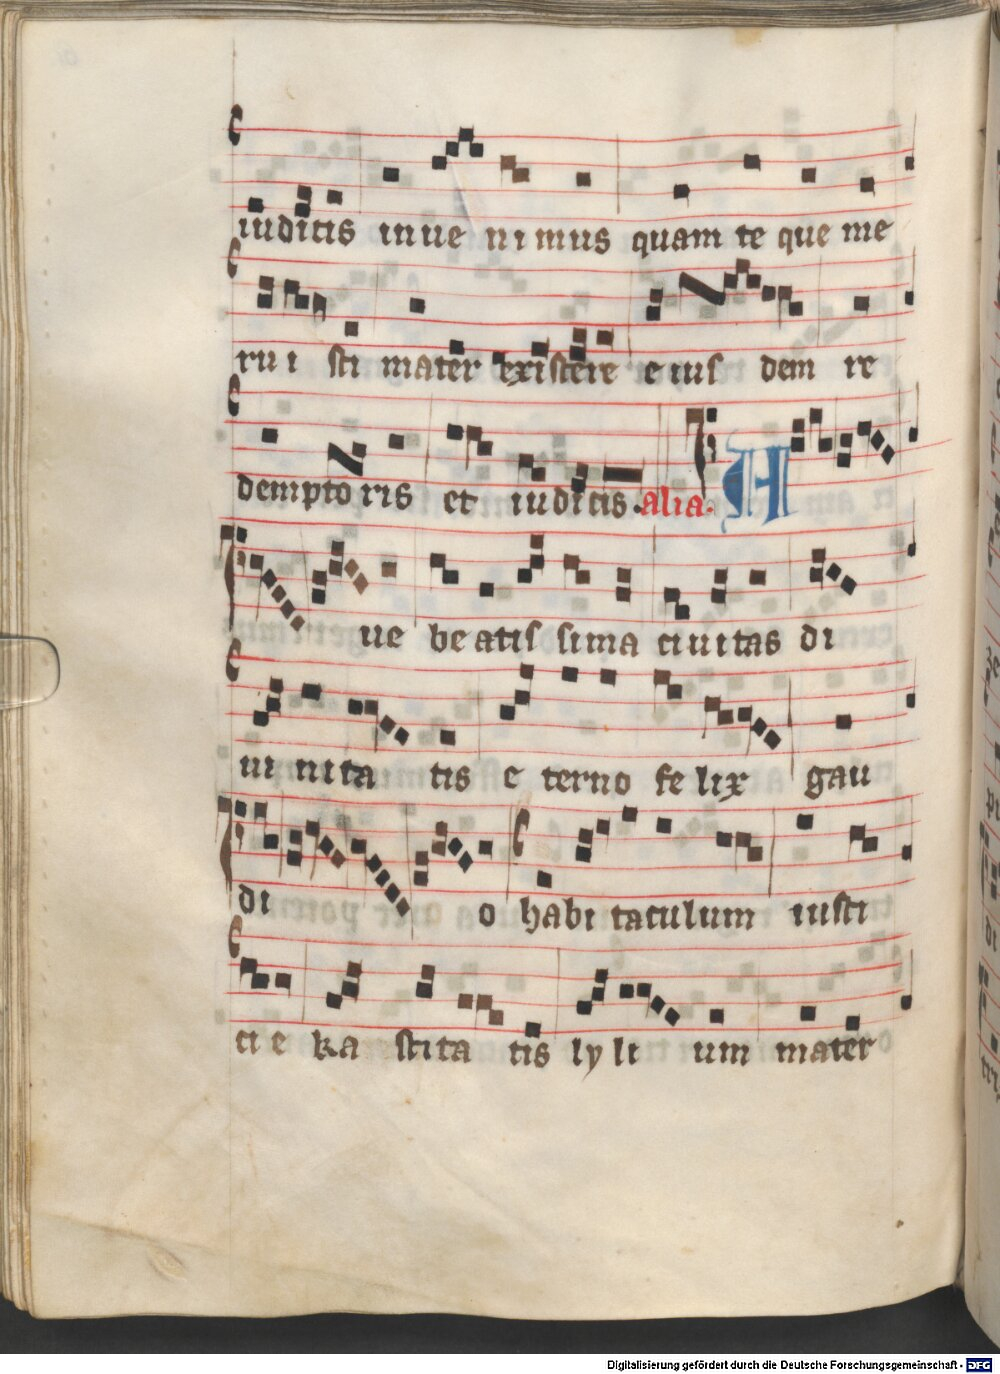 iudicis inue ni mus quam te que me
ru i sti mater existere e ius dem re
dempto ris et iudicis. alia. A
ue be atis sima ciuitas di
ui ni ta tis e terno fe lix gau
di o habi taculum iusti
ci e ka sti ta tis ly li um mater
Digitalisierung gefördert durch die Deutsche Forschungsgemeinschaft - DFG